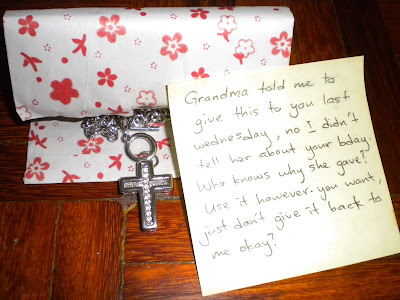 Grandma told me to
give this to you last
wednesday, no I didn't
tell her about your bday.
Who knows why she gave!
Use it however you want,
just don't give it back to
me okay?